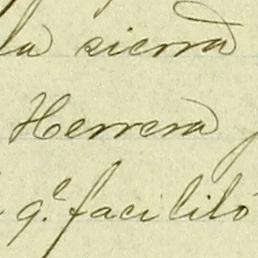 la sierra
Herrera
q.e facilitó